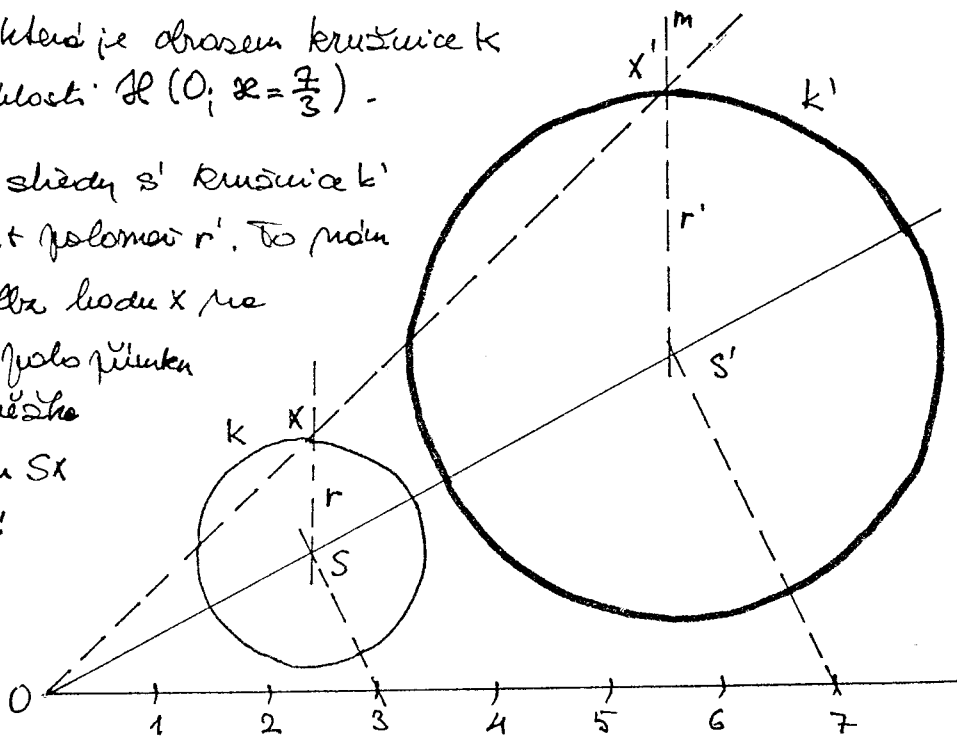 která je obrazem kružnice k
H (O; ϰ = 7/3).
středy s' kružnice k'
poloměr r'. To nám
bodu x na
polopřímku
Sx
m
x'
k'
r'
s'
k
x
r
S
O
1 2 3 4 5 6 7